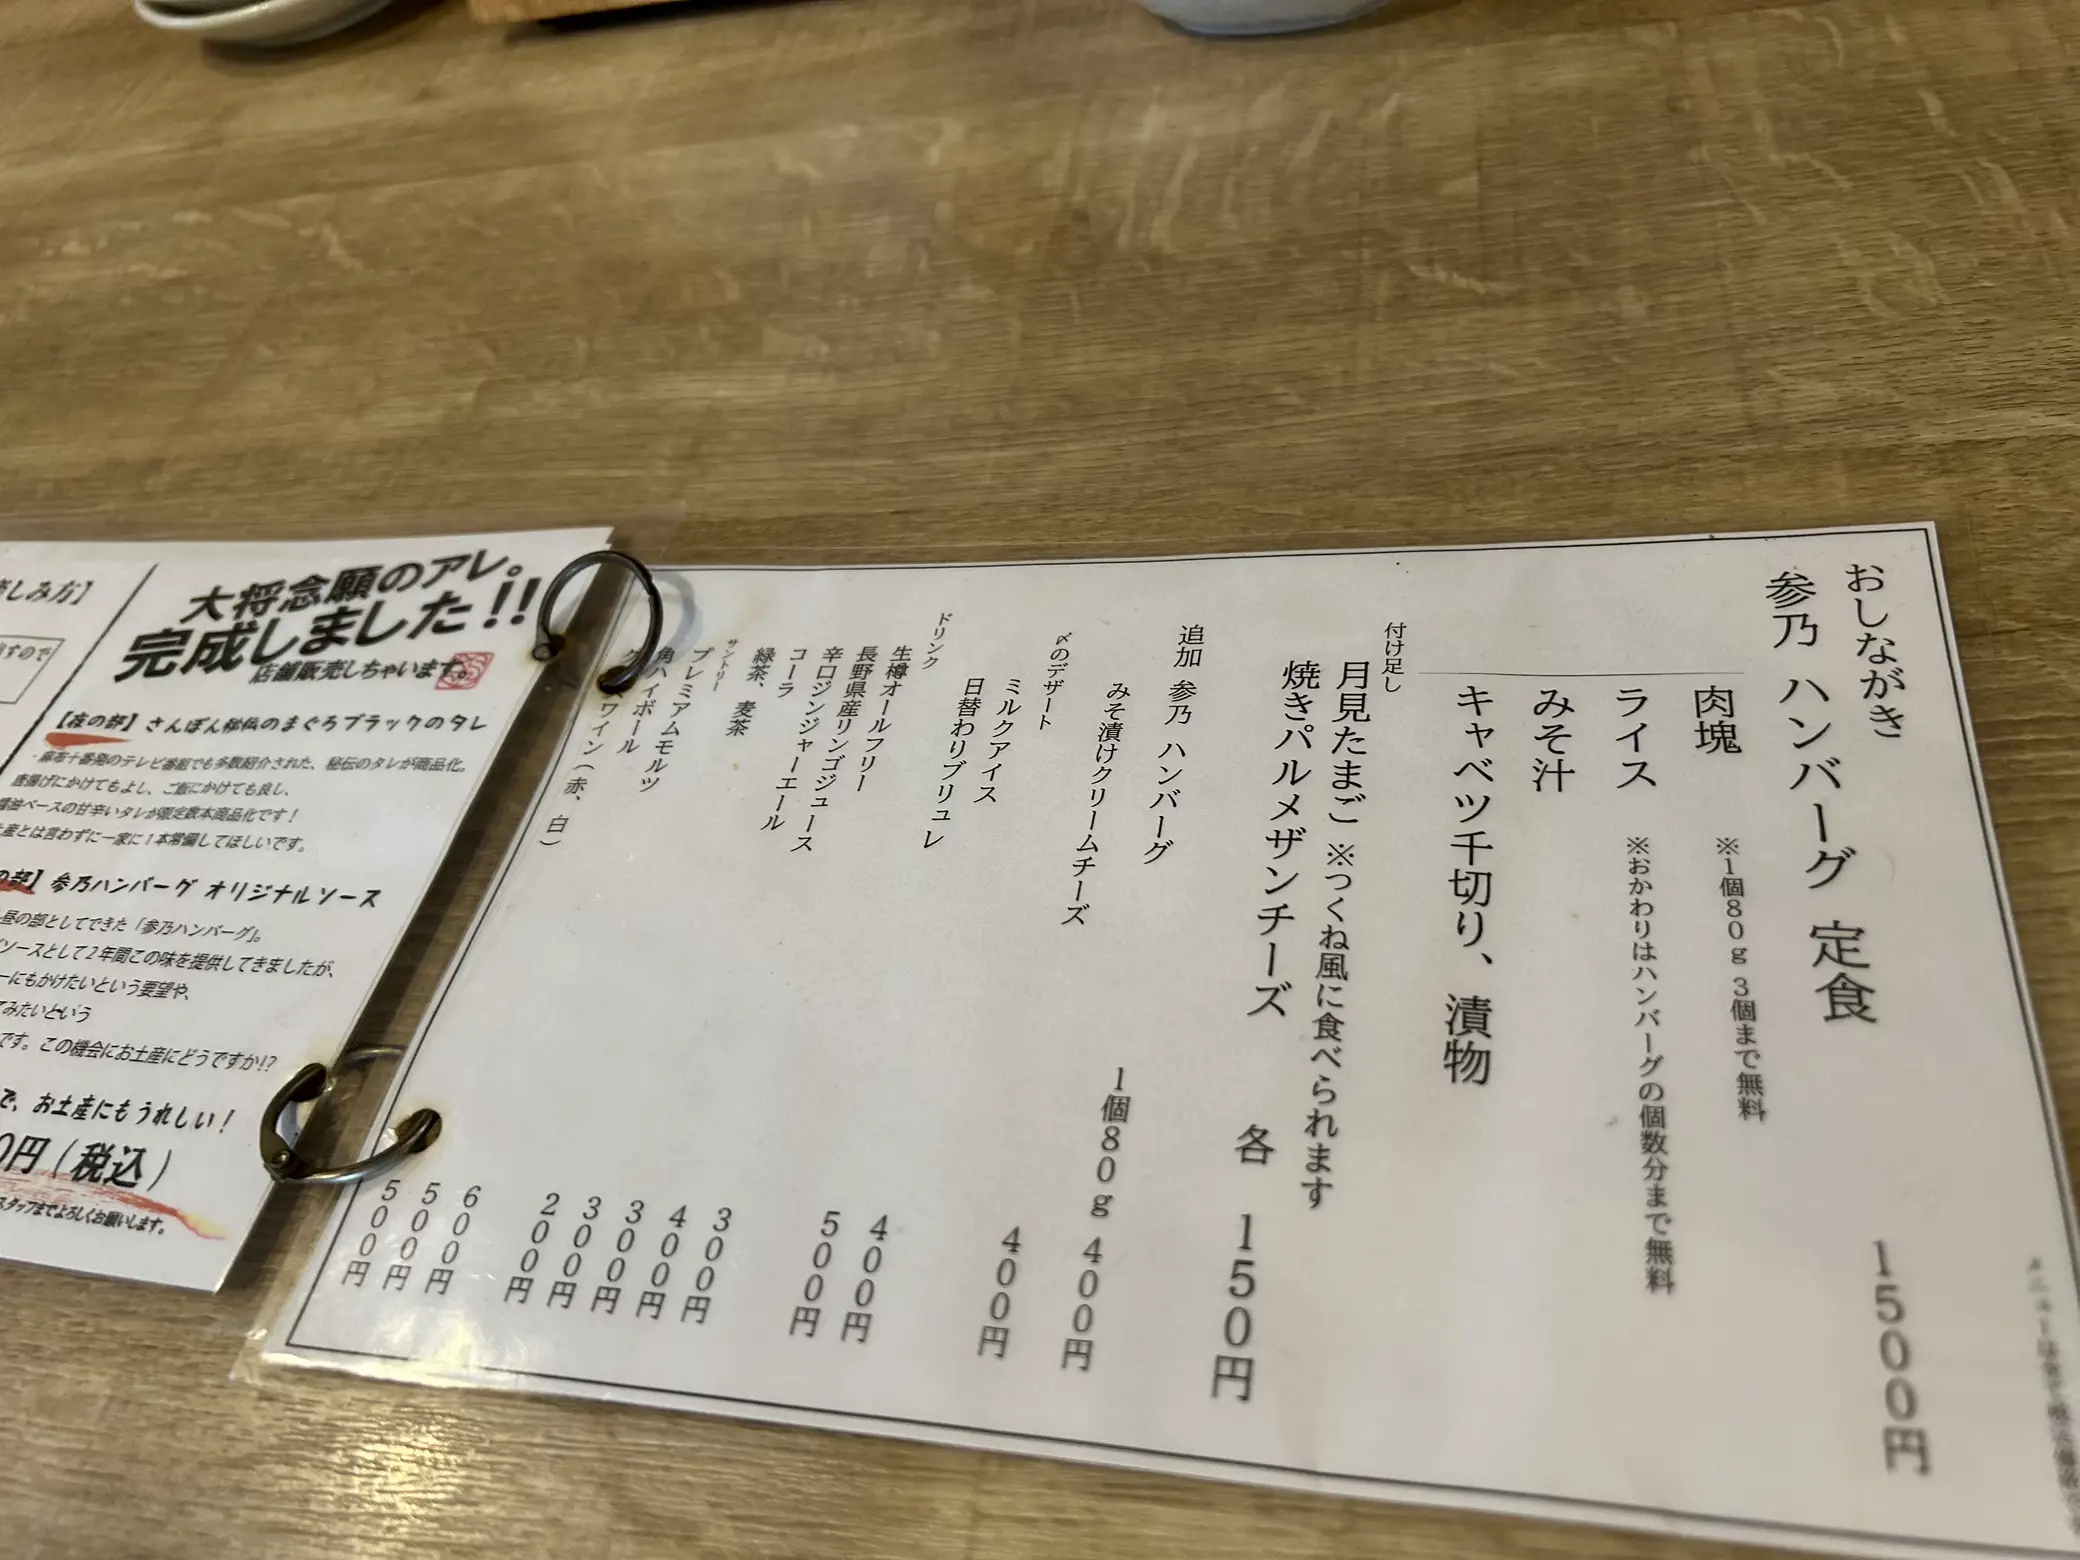 おしながき
参乃 ハンバーグ 定食 1500円
肉塊 ※1個80g 3個まで無料
ライス ※おかわりはハンバーグの個数分まで無料
みそ汁
キャベツ千切り、漬物
付け足し
月見たまご ※つくね風に食べられます
焼きパルメザンチーズ 各 150円
追加 参乃 ハンバーグ 1個80g 400円
みそ漬けクリームチーズ 400円
〆のデザート
ミルクアイス 400円
日替わりブリュレ 500円
ドリンク
生樽オールフリー 300円
長野県産リンゴジュース 400円
辛口ジンジャーエール 300円
コーラ 300円
緑茶、麦茶 200円
サントリー
プレミアムモルツ 600円
角ハイボール 500円
ワイン（赤、白） 500円
楽しみ方】
すので
大将念願のアレ。
完成しました!!
店舗販売しちゃいます。
【夜の部】さんぽん秘伝のまぐろブラックのタレ
・麻布十番発のテレビ番組でも多数紹介された、秘伝のタレが商品化。
唐揚げにかけてもよし、ご飯にかけても良し、
醤油ベースの甘辛いタレが限定数本商品化です！
土産とは言わずに一家に1本常備してほしいです。
の部】参乃ハンバーグ オリジナルソース
昼の部としてできた「参乃ハンバーグ」。
ソースとして2年間この味を提供してきましたが、
ーにもかけたいという要望や、
てみたいという
です。この機会にお土産にどうですか!?
で、お土産にもうれしい！
0円（税込）
スタッフまでよろしくお願いします。